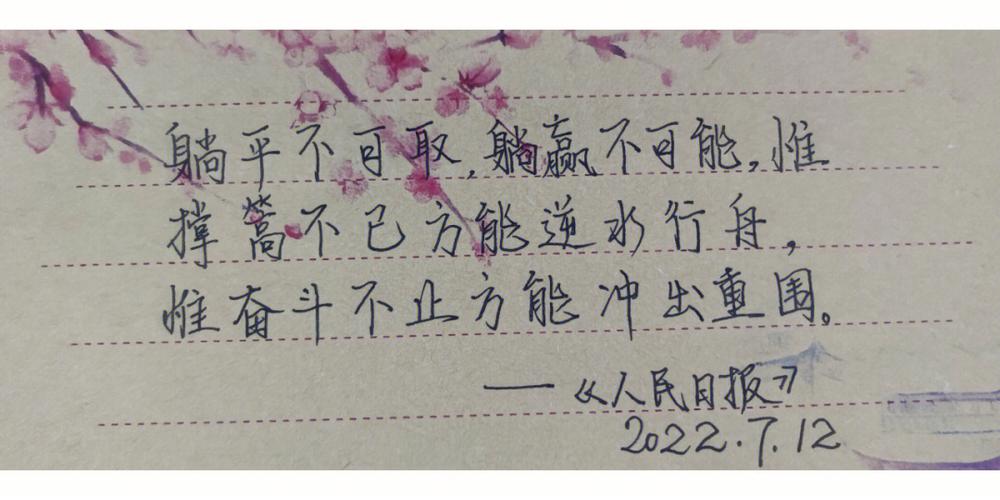 躺平不可取,躺赢不可能,惟
撑篙不已方能逆水行舟,
惟奋斗不止方能冲出重围。
——《人民日报》
2022.7.12